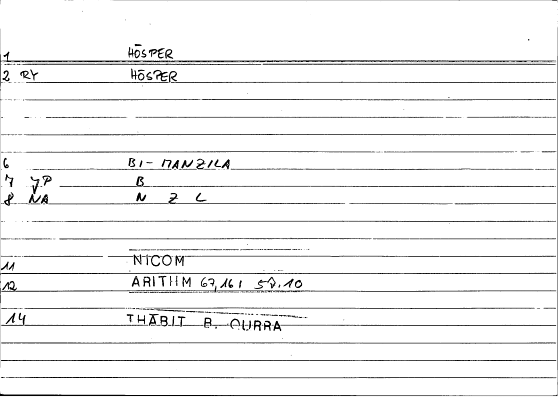 1 HŌSPER
2 RY HŌSPER
6 BI-MANZILA
7 YP B
8 NA N Z L
11 NICOM
12 ARITHM 67,16; 58.10
14 THĀBIT B. QURRA